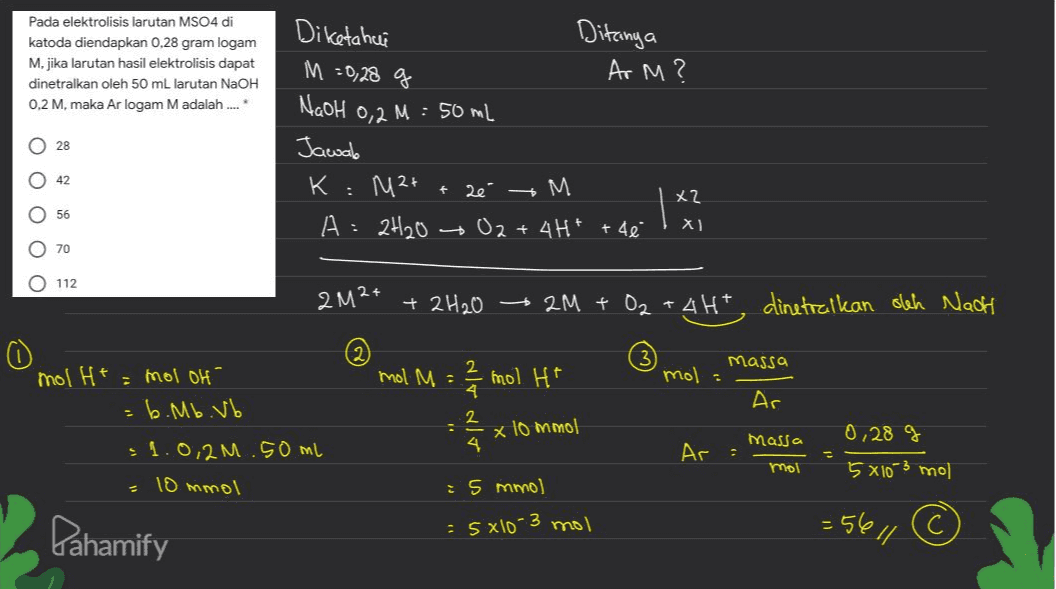 Pada elektrolisis larutan MSO4 di
katoda diendapkan 0,28 gram logam
M, jika larutan hasil elektrolisis dapat
dinetralkan oleh 50 mL larutan NaOH
0,2 M, maka Ar logam M adalah .... *
28
42
56
70
112
Diketahui
M = 0,28 g
NaOH 0,2 M = 50 mL
Ditanya
Ar M ?
Jawab
K : M²⁺ + 2e⁻ → M | x2
A : 2H₂O → O₂ + 4H⁺ + 4e⁻ | x1
2M²⁺ + 2H₂O → 2M + O₂ + 4H⁺, dinetralkan oleh NaOH
①
mol H⁺ = mol OH⁻
= b.Mb.Vb
= 1.0,2M.50 mL
= 10 mmol
②
mol M = 2/4 mol H⁺
= 2/4 x 10 mmol
= 5 mmol
= 5 x10⁻³ mol
③
mol = massa / Ar
Ar = massa / mol = 0,28 g / 5 x10⁻³ mol
= 56 // C
Pahamify